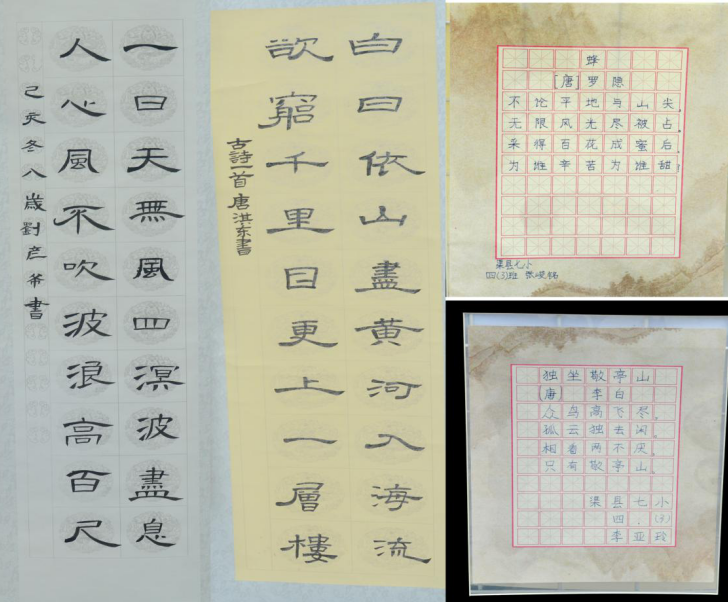 一日天無風四溟波盡息
人心風不吹波浪高百尺
己亥冬八歲劉彦書
白日依山盡黄河入海流
欲窮千里目更上一層樓
古詩一首唐洪东書
蜂
[唐]罗隐
不论平地与山尖，
无限风光尽被占。
采得百花成蜜后，
为谁辛苦为谁甜？
渠县七小
四(3)班 张
独坐敬亭山
[唐] 李白
众鸟高飞尽，
孤云独去闲。
相看两不厌，
只有敬亭山。
渠县七小
四.(3)
李亚玲